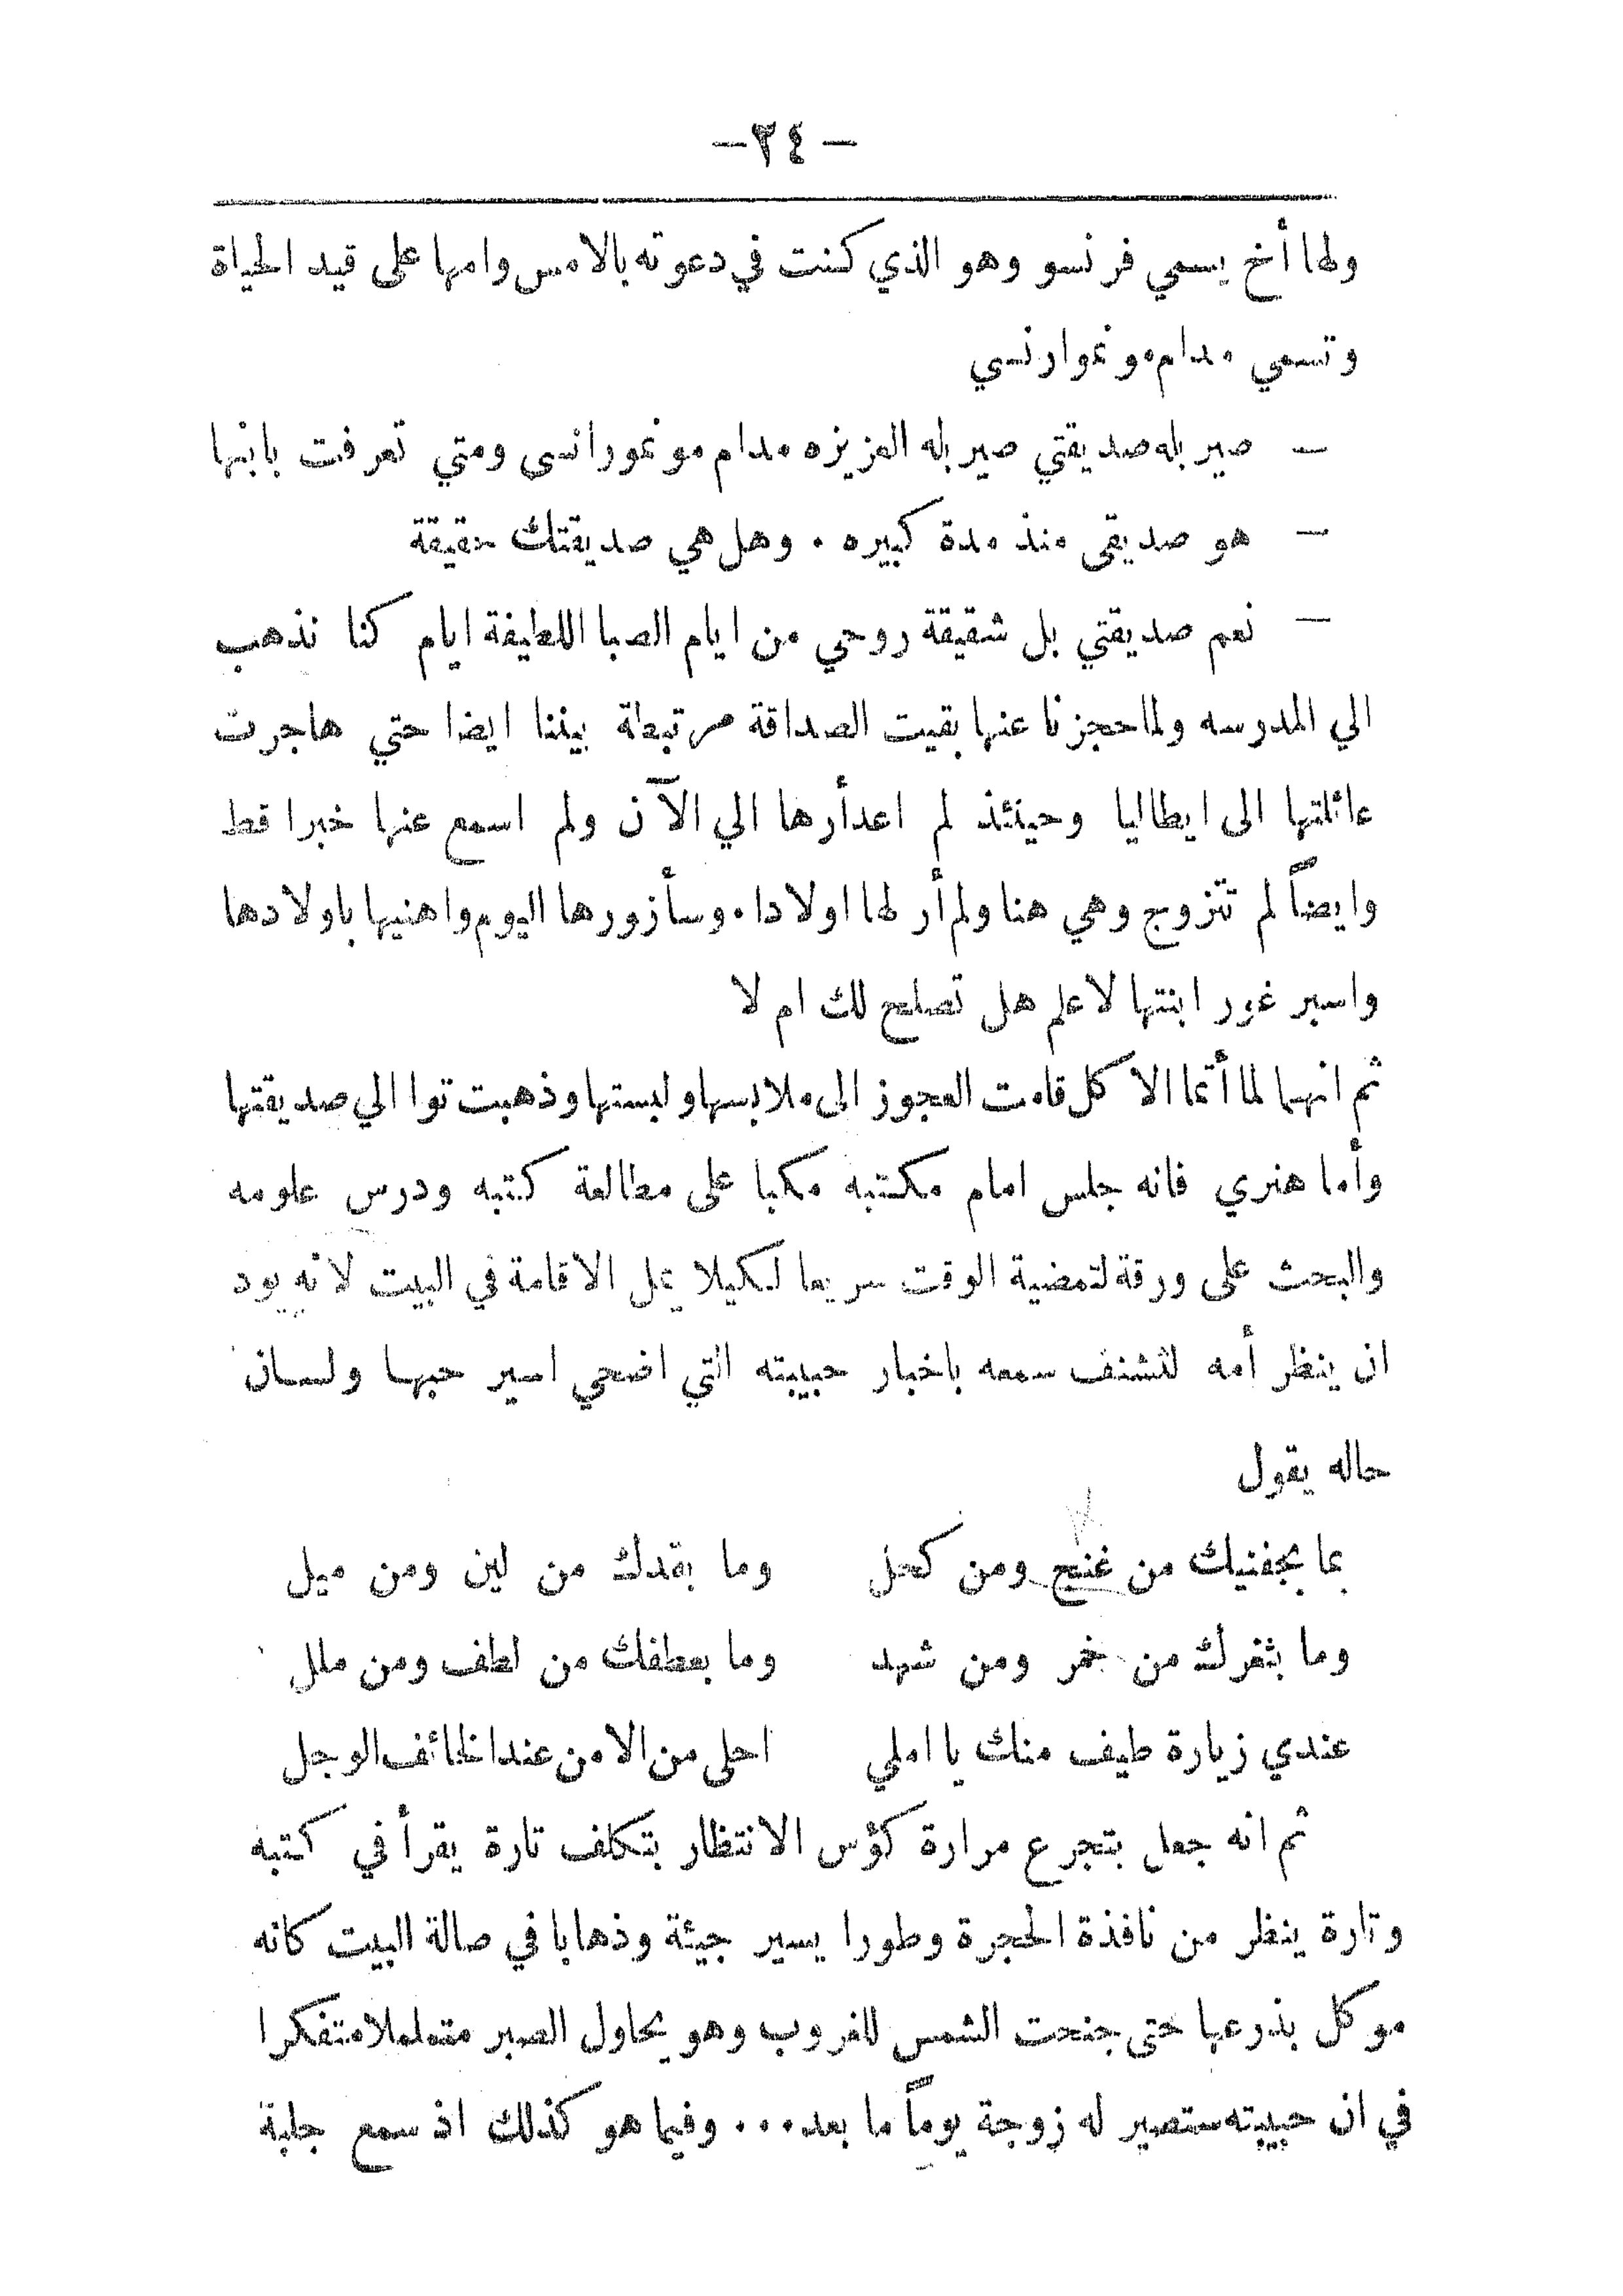 -٣٤-
ولها أخ يسمي فرنسو وهو الذي كنت في دعوته بالامس وامها على قيد الحياة
وتسمي مدام مونموارنسي
— صير بله صديقتي صير بله العزيزه مدام مونمورانسى ومتي تعرفت بابنها
— هو صديقى منذ مدة كبيره . وهل هي صديقتك حقيقة
— نعم صديقتي بل شقيقة روحي من ايام الصبا اللطيفة ايام كنا نذهب
الي المدرسه ولما حجزنا عنها بقيت الصداقة مرتبطة بيننا ايضا حتي هاجرت
عائلتها الى ايطاليا وحينئذ لم اعد أرها الي الآن ولم اسمع عنها خبرا قط
وايضاً لم تتزوج وهي هنا ولم أر لها اولادا . وسأزورها اليوم واهنيها باولادها
واسبر غور ابنتها لاعلم هل تصلح لك ام لا
ثم انهما لما أتما الاكل قامت العجوز الى ملابسها ولبستها وذهبت توا الي صديقتها
وأما هنري فانه جلس امام مكتبه مكبا على مطالعة كتبه ودرس علومه
والبحث على ورقة لتمضية الوقت سريعا لكيلا يمل الاقامة في البيت لانه يود
ان ينظر أمه لتشنف سمعه باخبار حبيبته التي اضحي اسير حبها ولسان
حاله يقول
بما بجفنيك من غنج ومن كحل وما بقدك من لين ومن ميل
وما بثغرك من خمر ومن شهد وما بعطفك من لطف ومن ملل
عندي زيارة طيف منك يا املي احلى من الامن عند الخائف الوجل
ثم انه جعل يتجرع مرارة كؤس الانتظار بتكلف تارة يقرأ في كتبه
وتارة ينظر من نافذة الحجرة وطورا يسير جيئة وذهابا في صالة البيت كانه
موكل بذرعها حتى جنحت الشمس للغروب وهو يحاول الصبر متململا متفكرا
في ان حبيبته ستصير له زوجة يوماً ما بعد . . . وفيما هو كذلك اذ سمع جلبة